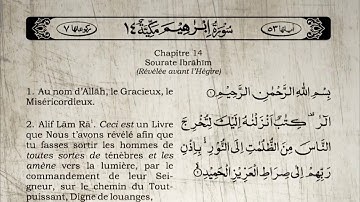 اٰیاتھا ۵۳ سُوۡرَۃُ اِبۡرٰھِیۡمَ مَکِّیَّۃٌ ۱۴ رکوعاتھا ۷
Chapitre 14
Sourate Ibrāhīm
(Révélée avant l'Hégire)
1. Au nom d'Allāh, le Gracieux, le
Miséricordieux.
بِسۡمِ اللّٰہِ الرَّحۡمٰنِ الرَّحِیۡمِ
2. Alif Lām Rā'. Ceci est un Livre
que Nous t'avons révélé afin que
tu fasses sortir les hommes de
toutes sortes de ténèbres et les
amène vers la lumière, par le
commandement de leur Sei-
gneur, sur le chemin du Tout-
puissant, Digne de louanges,
الٓرٰ ۟ کِتٰبٌ اَنۡزَلۡنٰہُ اِلَیۡکَ لِتُخۡرِجَ
النَّاسَ مِنَ الظُّلُمٰتِ اِلَی النُّوۡرِ ۬ۙ بِاِذۡنِ
رَبِّہِمۡ اِلٰی صِرَاطِ الۡعَزِیۡزِ الۡحَمِیۡدِ